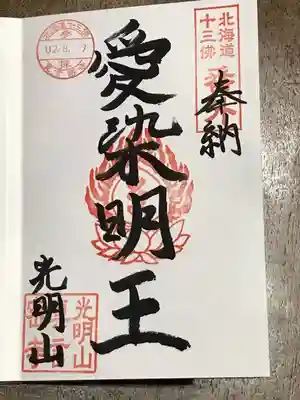 北海道
十三佛
奉納
愛染明王
光明山
光明山
02.8.